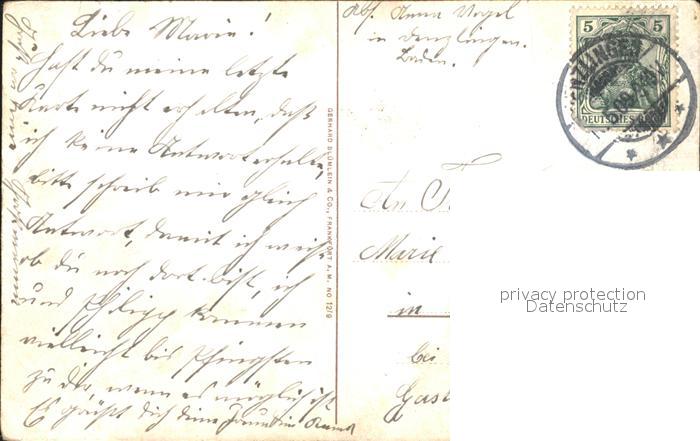 Liebe Marie!
Hast du meine letzte
Karte nicht erhalten, daß
ich keine Antwort erhalte,
bitte schreib mir gleich
Antwort, damit ich weiß
ob du noch dort bist, ich
und Philipp kommen
vielleicht bis Pfingsten
zu dir, wenn es möglich ist.
Es grüßt dich deine Freundin Anna
GERHARD BLÜMLEIN & CO., FRANKFURT A. M. NO 12/9
Abs. Anna Vogel
in Denzlingen.
Baden.
5 5
DEUTSCHES REICH
An
Marie
in
bei
Gast
privacy protection
Datenschutz